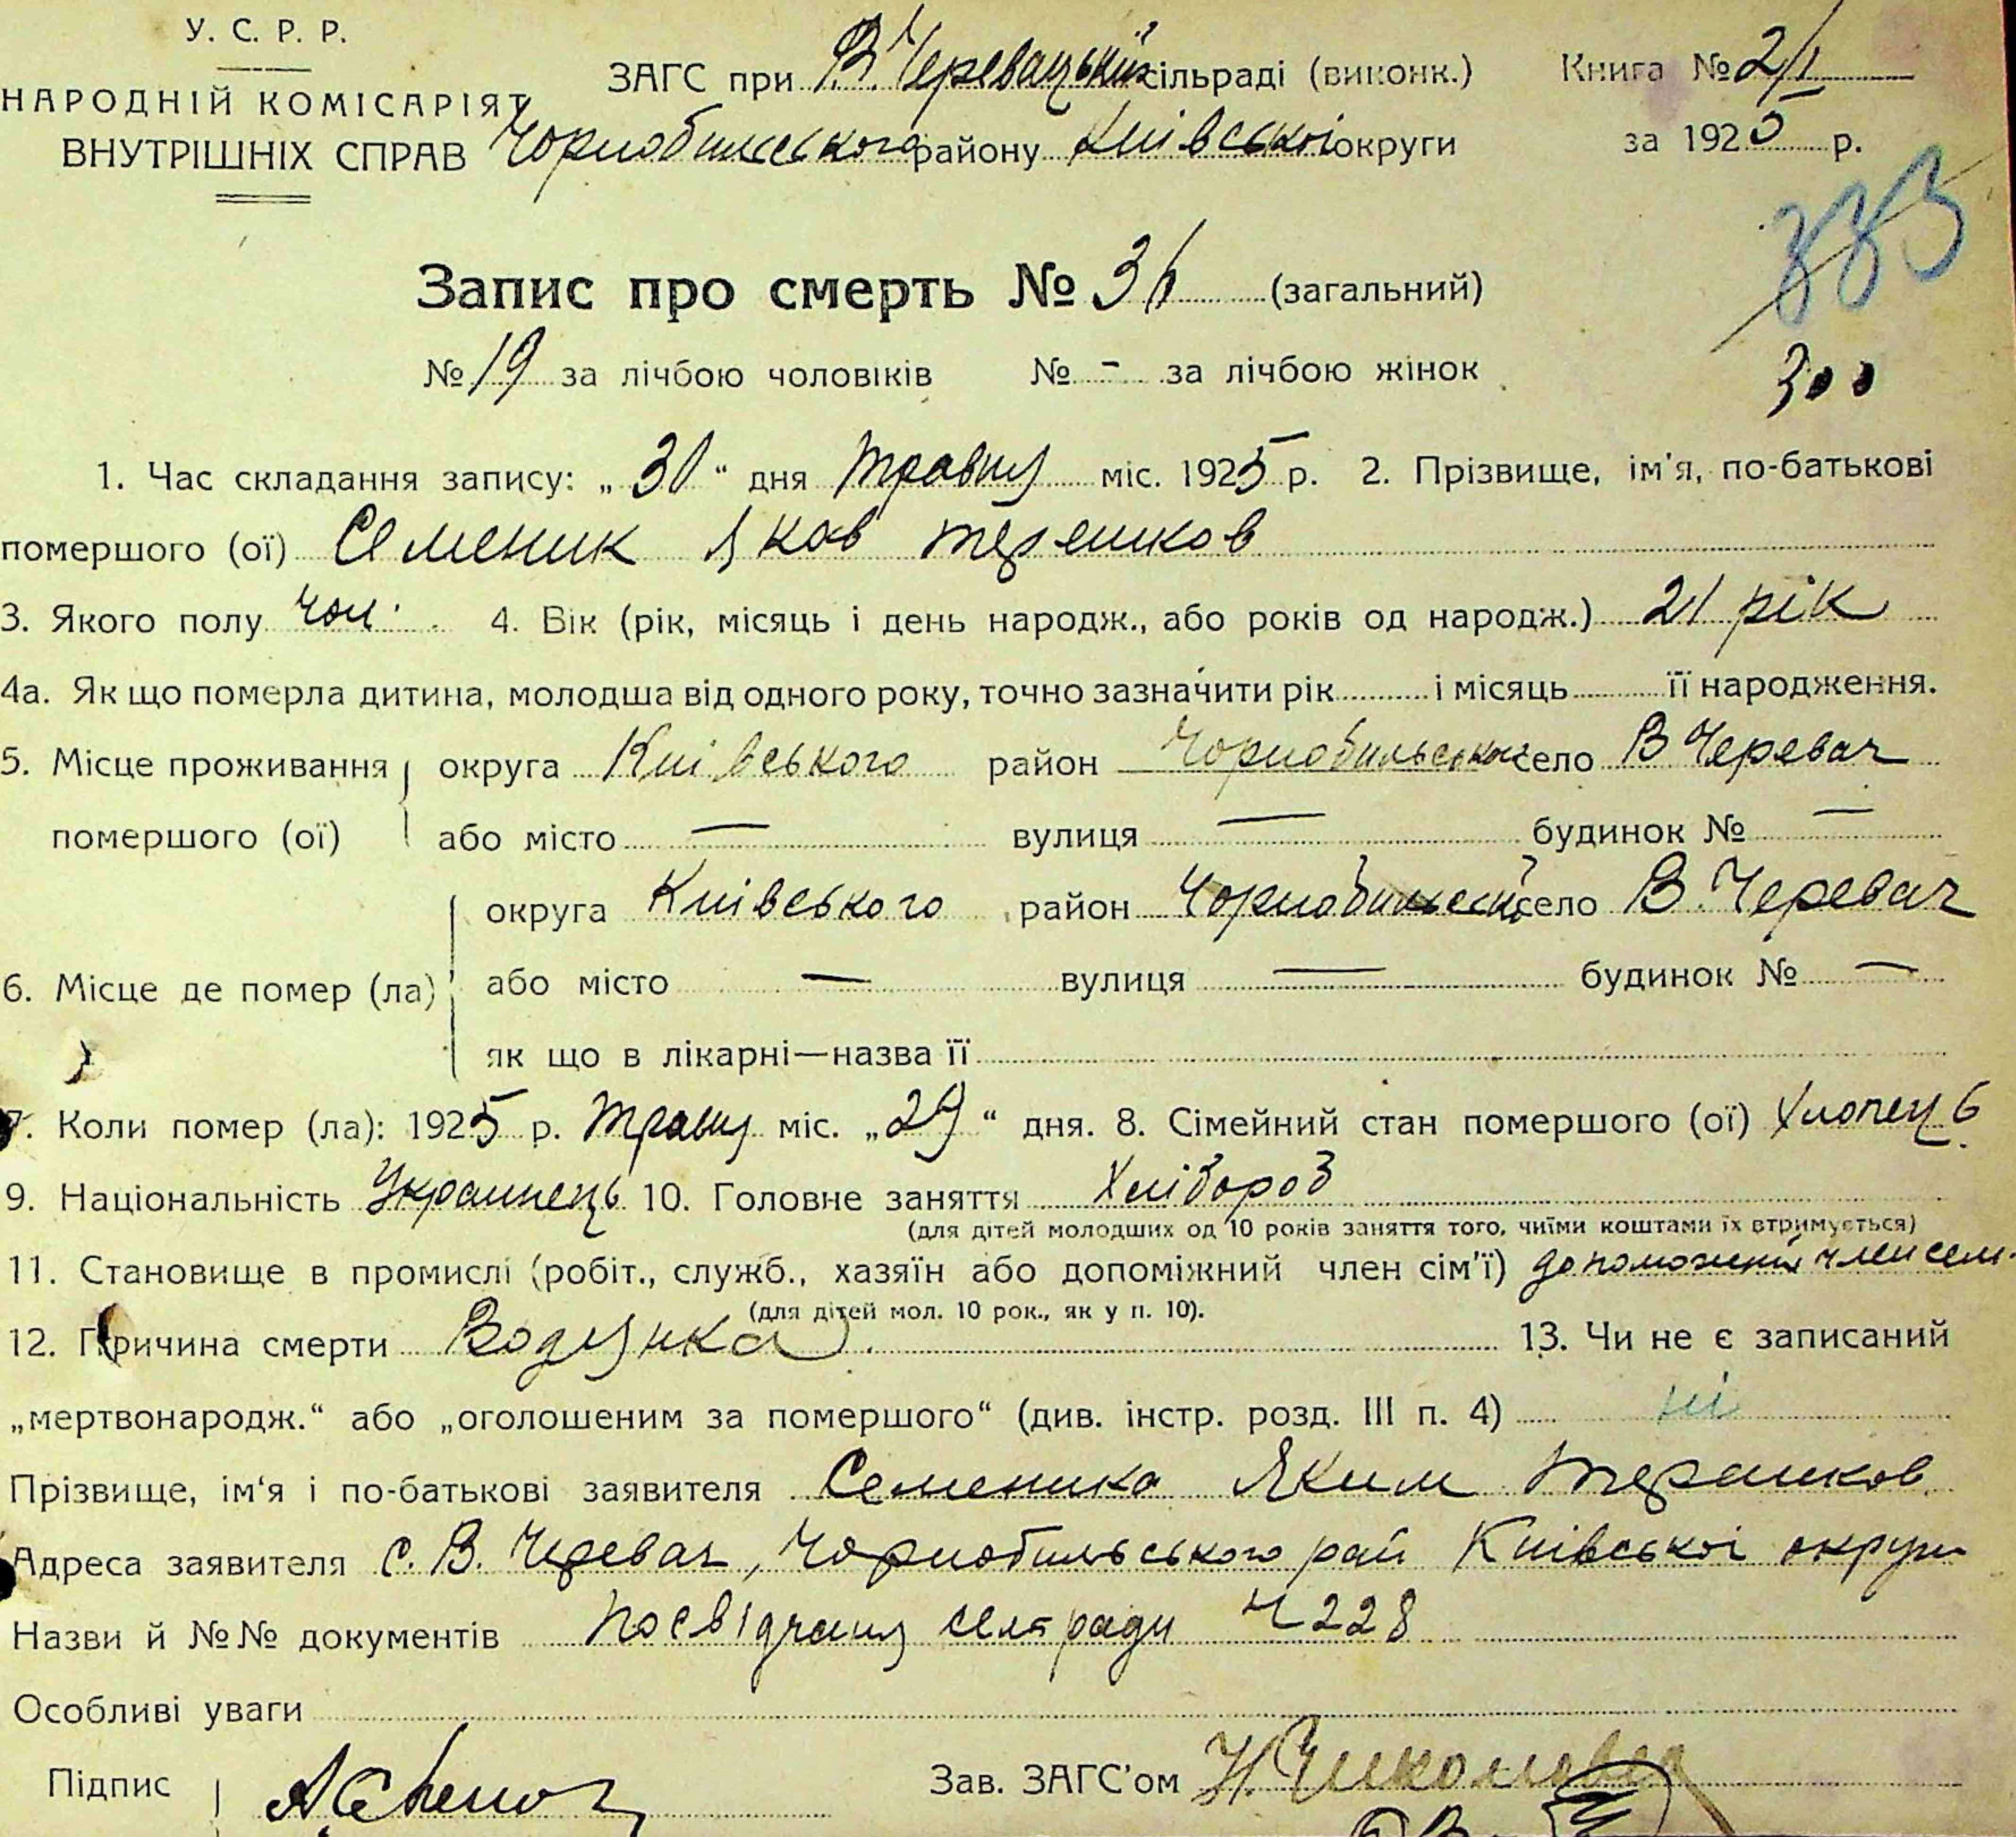 У. С. Р. Р.
НАРОДНІЙ КОМІСАРІЯТ
ВНУТРІШНІХ СПРАВ
ЗАГС при В. Черевацькій сільраді (виконк.) Книга № 2/1
Чорнобильського району Київської округи за 1925 р.
383
Запис про смерть № 36 (загальний)
№ 19 за лічбою чоловіків № - за лічбою жінок
300
1. Час складання запису: „30“ дня травня міс. 1925 р. 2. Прізвище, ім'я, по-батькові
помершого (ої) Семеник Яков терешков
3. Якого полу чол. 4. Вік (рік, місяць і день народж., або років од народж.) 21 рік
4а. Як що померла дитина, молодша від одного року, точно зазначити рік і місяць її народження.
5. Місце проживання помершого (ої) округа Київського район Чорнобильського село В Черевач
або місто — вулиця — будинок № —
6. Місце де помер (ла) округа Київського район Чорнобильськ село В. Черевач
або місто — вулиця — будинок № —
як що в лікарні—назва її
7. Коли помер (ла): 1925 р. травня міс. „29“ дня. 8. Сімейний стан помершого (ої) Хлопець
9. Національність Украинець 10. Головне заняття Хлібороб
(для дітей молодших од 10 років заняття того, чиїми коштами їх втримується)
11. Становище в промислі (робіт., служб., хазяїн або допоміжний член сім'ї) допоможний член семі
(для дітей мол. 10 рок., як у п. 10).
12. Причина смерти Водянка 13. Чи не є записаний
„мертвонародж.“ або „оголошеним за помершого“ (див. інстр. розд. III п. 4) ні
Прізвище, ім‘я і по-батькові заявителя Семеника Яким терешков
Адреса заявителя с. В. Черевач, Чорнобильського рай Київської округи
Назви й №№ документів Посвідчання селради № 228
Особливі уваги
Підпис Зав. ЗАГС’ом